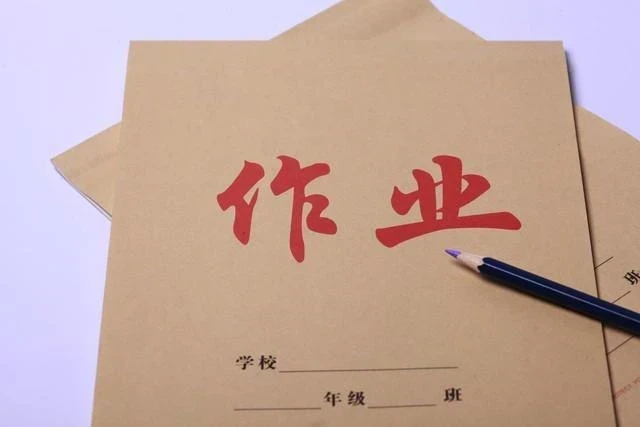 作业
学校
年级 班
班